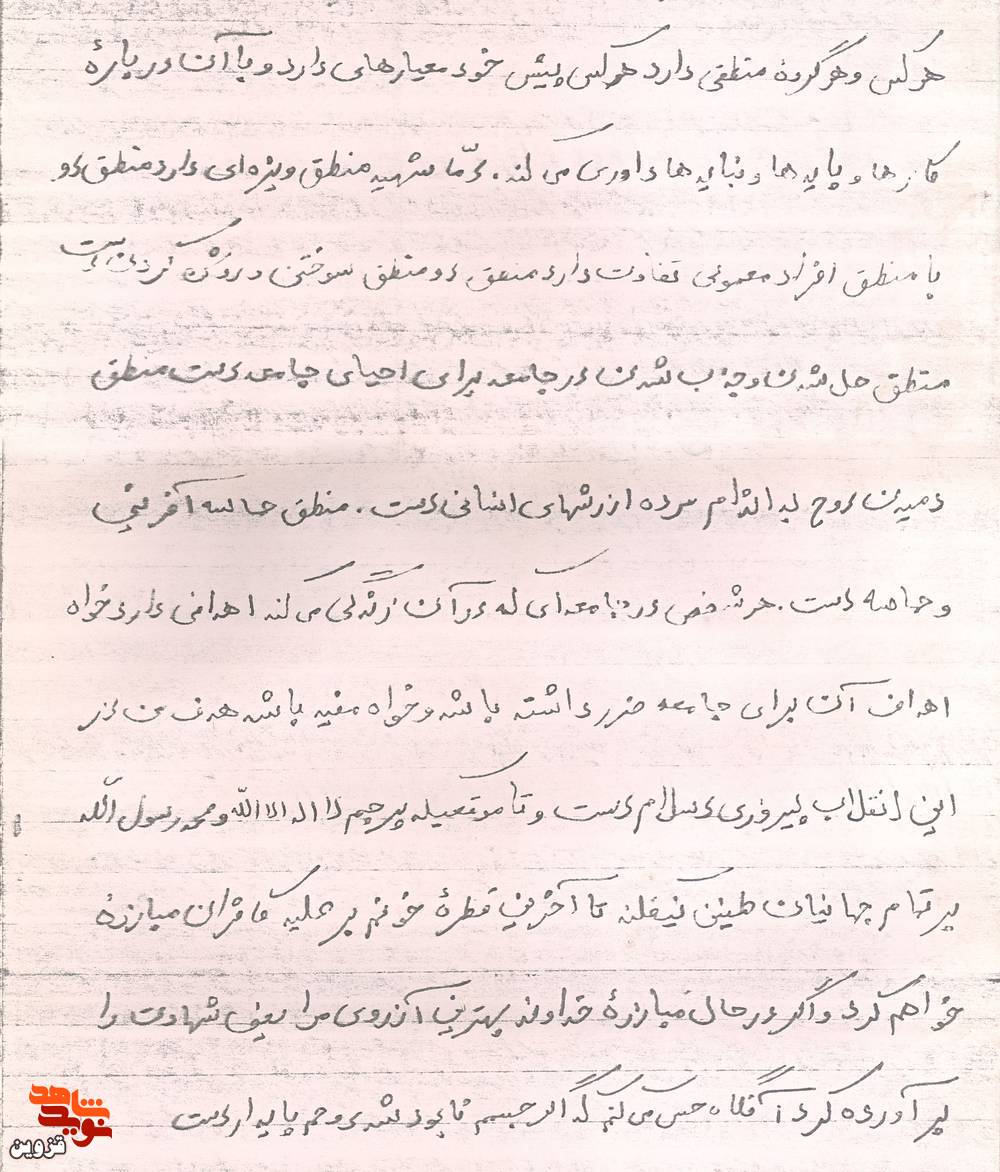 هر کس و هر گروه منطقی دارد هرکس پیش خود معیارهای دارد و با آن درباره
کارها و بایدها و نبایدها داوری می کند. امّا شهید منطق ویژه ای دارد منطق او
با منطق افراد معمولی تفاوت دارد منطق او منطق سوختن و روشن کردن است
منطق حل شدن و جذب شدن در جامعه برای احیای جامعه است منطق
دمیدن روح به اندام مرده ارزشهای انسانی است. منطق حماسه آفرینی
و حماسه است. هر شخص در جامعه ای که در آن زندگی می کند اهدافی دارد خواه
اهداف آن برای جامعه ضرر داشته باشد و خواه مفید باشد هدف من از
این انقلاب پیروزی اسلام است و تا موقعیکه پرچم لا اله الا الله و محمد رسول الله
بر تمام جهانیان طنین نیفکند تا آخرین قطرهٔ خونم بر علیه کافران مبارزه
خواهم کرد و اگر در حال مبارزهٔ خداوند بهترین آرزوی مرا یعنی شهادت را
بر آورده کرد آنگاه حس می کنم که اگر جسم نابود شد روحم پایدار است
شاهد
نوید
قزوین